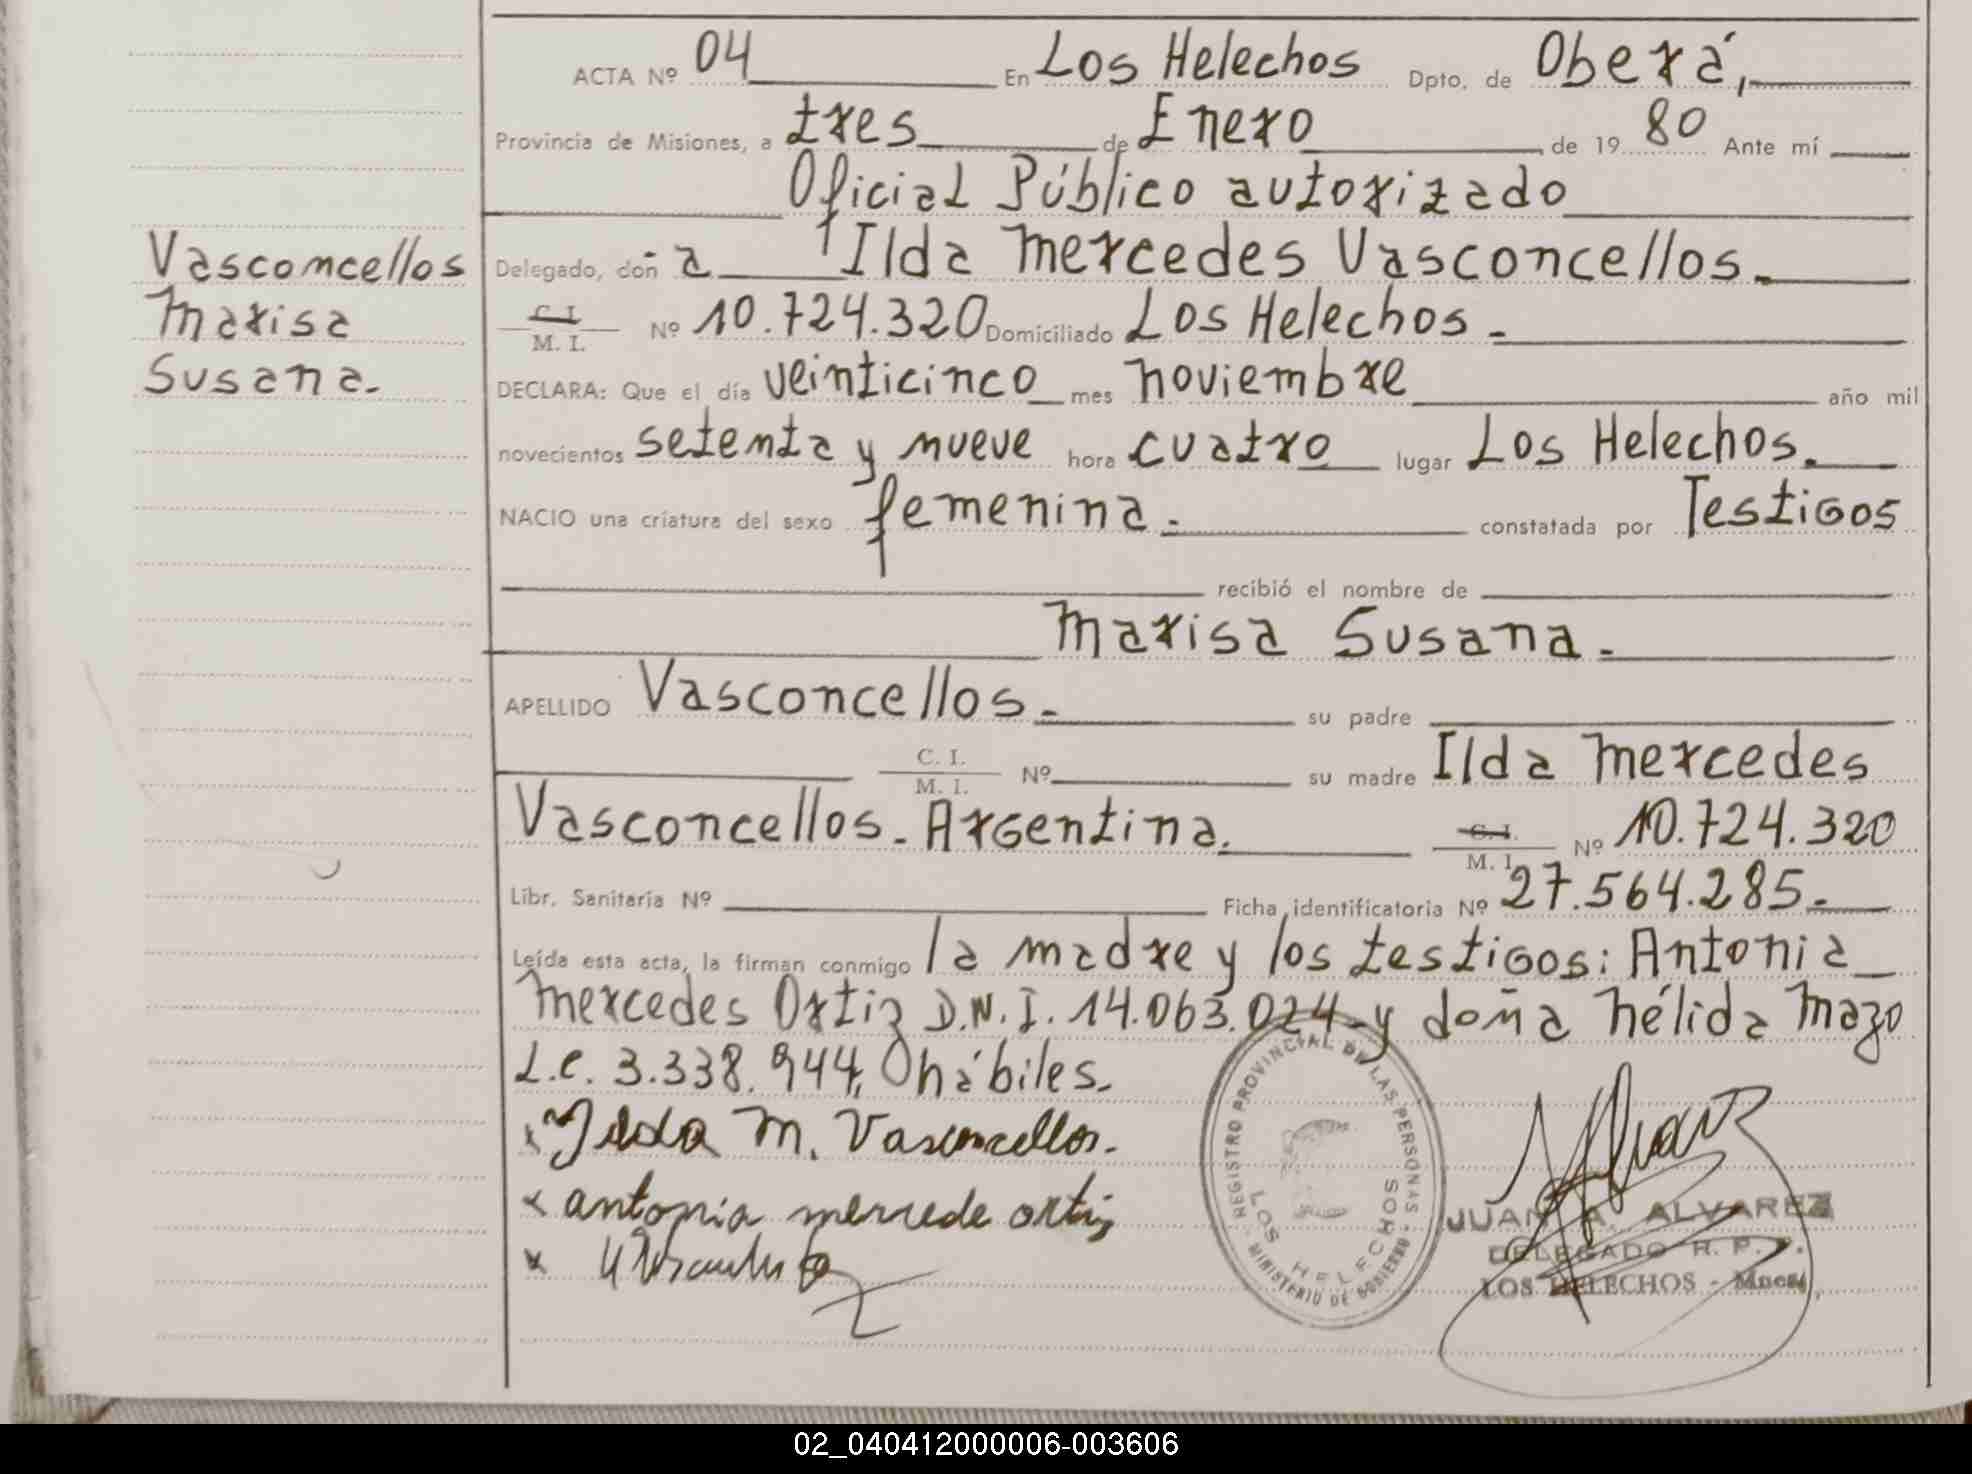 ACTA Nº 04 En Los Helechos Dpto. de Oberá,
Provincia de Misiones, a tres de Enero de 19 80 Ante mí
Oficial Público autorizado
Vasconcellos
Marisa
Susana.
Delegado, doñ a Ilda Mercedes Vasconcellos.
C. I.
M. I.
Nº 10.724.320 Domiciliado Los Helechos.
DECLARA: Que el día veinticinco mes noviembre año mil
novecientos setenta y nueve hora cuatro lugar Los Helechos.
NACIO una criatura del sexo femenina. constatada por Testigos
recibió el nombre de
Marisa Susana.
APELLIDO Vasconcellos. su padre
C. I.
M. I.
Nº su madre Ilda Mercedes
Vasconcellos. Argentina.
C. I.
M. I.
Nº 10.724.320
Libr. Sanitaria Nº Ficha identificatoria Nº 27.564.285.
Leída esta acta, la firman conmigo la madre y los testigos: Antonia
Mercedes Ortiz D.N.I. 14.063.024 y doña Nélida Mazo
L.C. 3.338.944, hábiles.
x Ilda M. Vasconcellos.
x antonia mercede ortiz
x
REGISTRO PROVINCIAL DE LAS PERSONAS
LOS HELECHOS
MINISTERIO DE GOBIERNO
JUAN A. ALVAREZ
DELEGADO R. P. P.
LOS HELECHOS - Mnes.
02_040412000006-003606